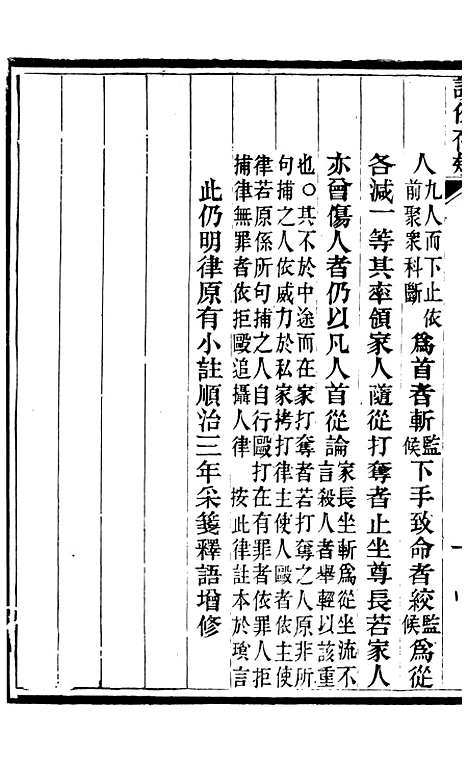 人九人而下止依前聚衆科斷爲首者斬監候下手致命者絞監候爲從
各減一等其率領家人隨從打奪者止坐尊長若家人
亦曾傷人者仍以凡人首從論家長坐斬爲從坐流不言殺人者舉輕以該重
也○其不於中途而在家打奪者若打奪之人原非所
句捕之人依威力於私家拷打律主使人毆者依主使
律若原係所句捕之人自行毆打在有罪者依罪人拒
捕律無罪者依拒毆追攝人律 按此律註本於瑣言
此仍明律原有小註順治三年采箋釋語增修